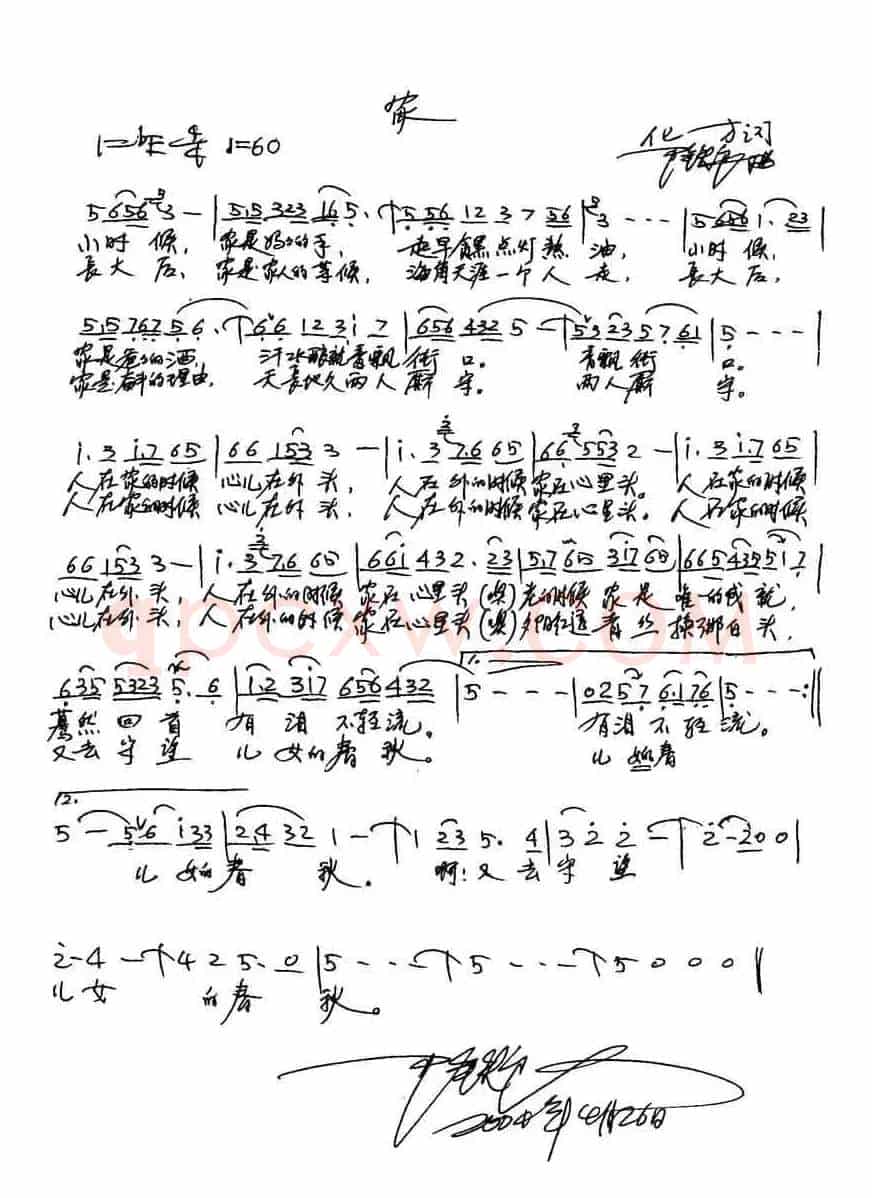 家
1=♭E 4/4 ♩=60
化方词
曲
5 6 5 6 3 — | 5 5 3 2 3 1 6 5 . | 5 5 6 1 2 3 7 5 6 | 3 - - - | 5 6 5 6 1 . 2 3 |
小时候，家是妈妈的手， 起早贪黑点灯熬油， 小时候，
長大后，家是家人的等候，海角天涯一个人走，長大后，
5 1 5 7 6 7 5 6 . | 6 6 1 2 3 1 7 | 6 5 6 4 3 2 5 — | 5 3 2 3 5 7 6 1 | 5 - - - |
家是爸爸的酒， 汗水酿就香飘街口。 香飘街口。
家是奋斗的理由， 天長地久两人厮守。 两人厮守。
1 . 3 1 7 6 5 | 6 6 1 5 3 3 — | 1 . 3 7 6 6 5 | 6 6 5 5 3 2 — | 1 . 3 1 7 6 5 |
人在家的时候 心儿在外头， 人在外的时候 家在心里头。 人在家的时候
人在家的时候 心儿在外头， 人在外的时候 家在心里头。 人在家的时候
6 6 1 5 3 3 — | 1 . 3 7 6 6 5 | 6 6 1 4 3 2 . 2 3 | 5 1 7 6 5 3 1 7 6 5 | 6 6 5 4 3 5 5 1 7 |
心儿在外头，人在外的时候 家在心里头（噢）老的时候 家是唯一的成就，
心儿在外头，人在外的时候 家在心里头（噢） 青丝换那白头，
6 3 5 5 3 2 3 5 . 6 | 1 2 3 1 7 6 5 6 4 3 2 | 1. 5 - - - | 0 2 5 7 6 1 7 6 | 5 - - - :||
蓦然回首 有泪不轻流。 有泪不轻流。
又去守望 儿女的春秋。 儿女的春
2.
5 — 5 6 1 3 3 | 2 4 3 2 1 — | 1 2 3 5 . 4 | 3 2 2 — | 2 - 2 0 0 |
儿女的春秋。 啊！又去守望
2 - 4 — | 4 2 5 . 0 | 5 - - - | 5 - - - | 5 0 0 0 ||
儿女 的春 秋。
2004年4月26日
qpcxw.com